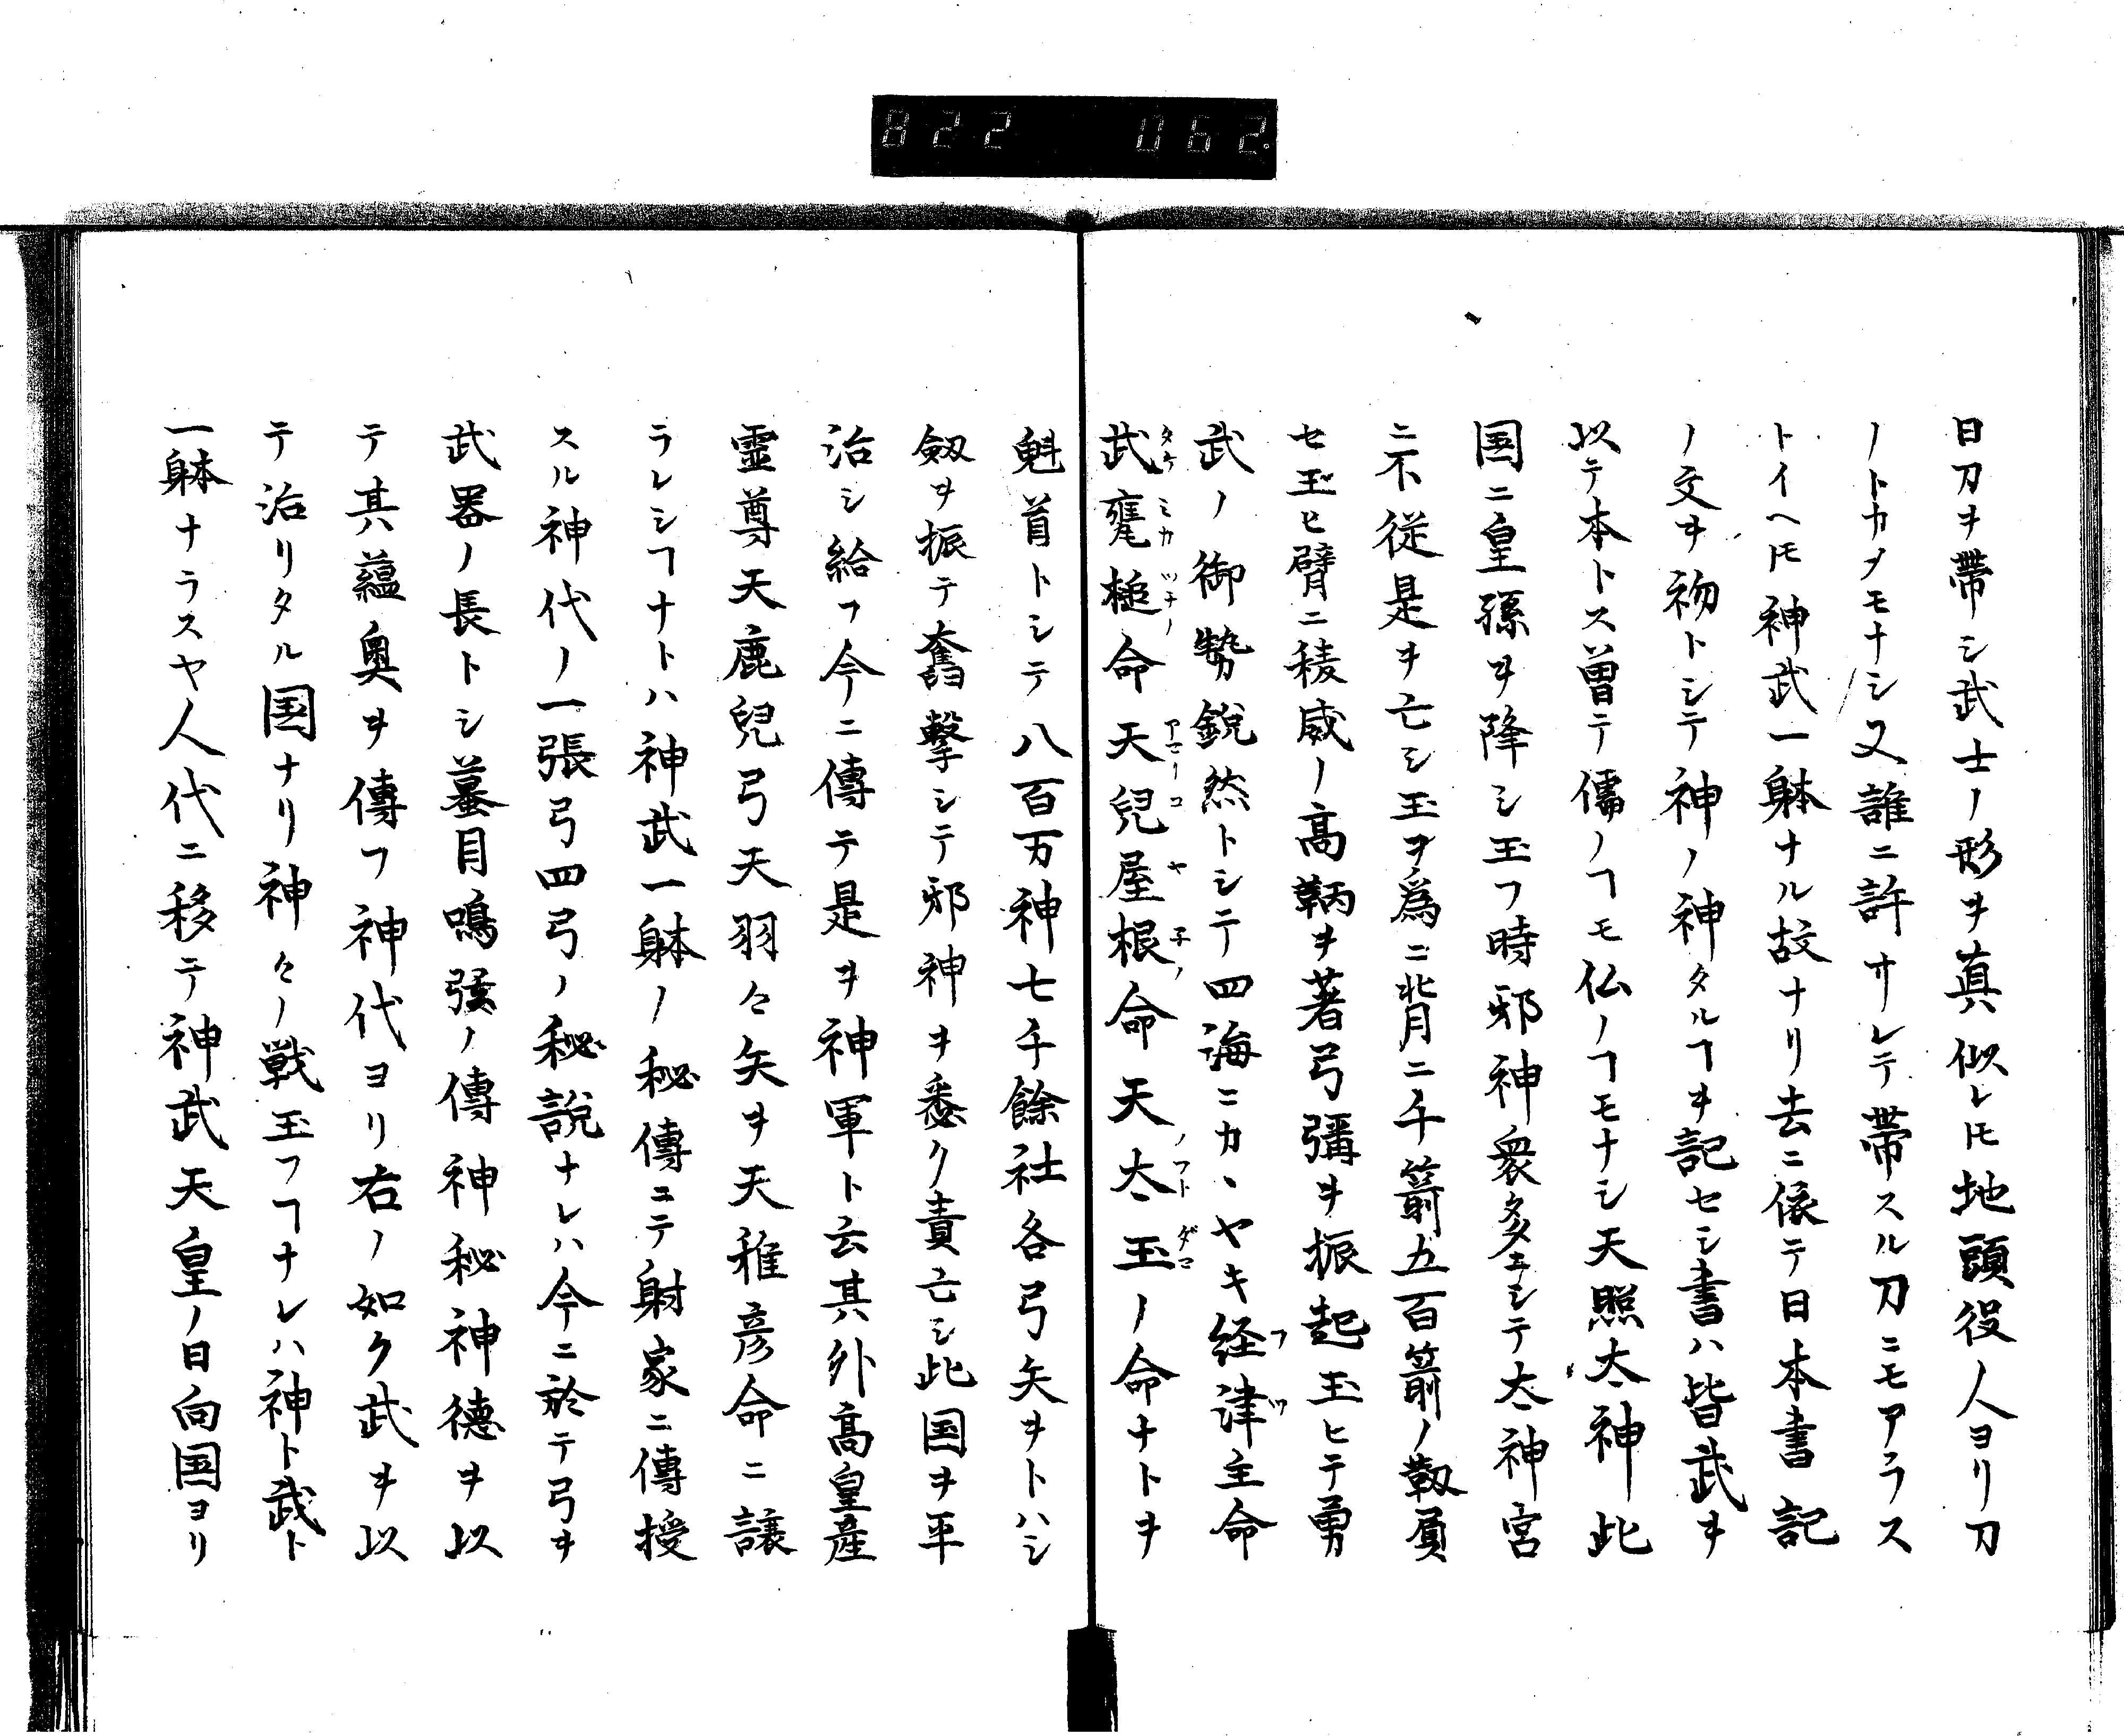 822 062.
日刀ヲ帯シ武士ノ形ヲ真似レ𪜈地頭役人ノ人ヨリ刀
ノトカメモナシ又誰ニ許サレテ帯スル刀ニモアラス
トイヘ𪜈神武一躰ナル故ナリ去ニ依テ日本書記
ノ文ヲ初トシテ神ノ神タルヿヲ記セシ書ハ皆武ヲ
以テ本トス曽テ儒ノヿモ仏ノヿモナシ天照太神此
国ニ皇孫ヲ降シ玉フ時邪神衆多ニシテ太神宮
ニ不従是ヲ亡シ玉ヲ為ニ背ニ千箭五百箭ノ靱負
セ玉ヒ臂ニ稜威ノ高鞆ヲ著弓彇ヲ振起玉ヒテ勇
武ノ御勢鋭然トシテ四海ニカヽヤキ経津主命
武甕槌命天兒屋根命天太玉ノ命ナトヲ
魁首トシテ八百万神七千餘社各弓矢ヲトハシ
剱ヲ振テ奮撃シテ邪神ヲ悉ク責亡シ此国ヲ平
治シ給フ今ニ傳テ是ヲ神軍ト云其外高皇産
霊尊天鹿兒弓天羽々矢ヲ天稚彦命ニ譲
ラレシヿナトハ神武一躰ノ秘傳ニテ射家ニ傳授
スル神代ノ一張弓四弓ノ秘説ナレハ今ニ於テ弓ヲ
武器ノ長トシ蟇目鳴弦ノ傳神秘神徳ヲ以
テ其蘊奥ヲ傳フ神代ヨリ右ノ如ク武ヲ以
テ治リタル国ナリ神々ノ戦玉フヿナレハ神ト武ト
一躰ナラスヤ人代ニ移テ神武天皇ノ日向国ヨリ